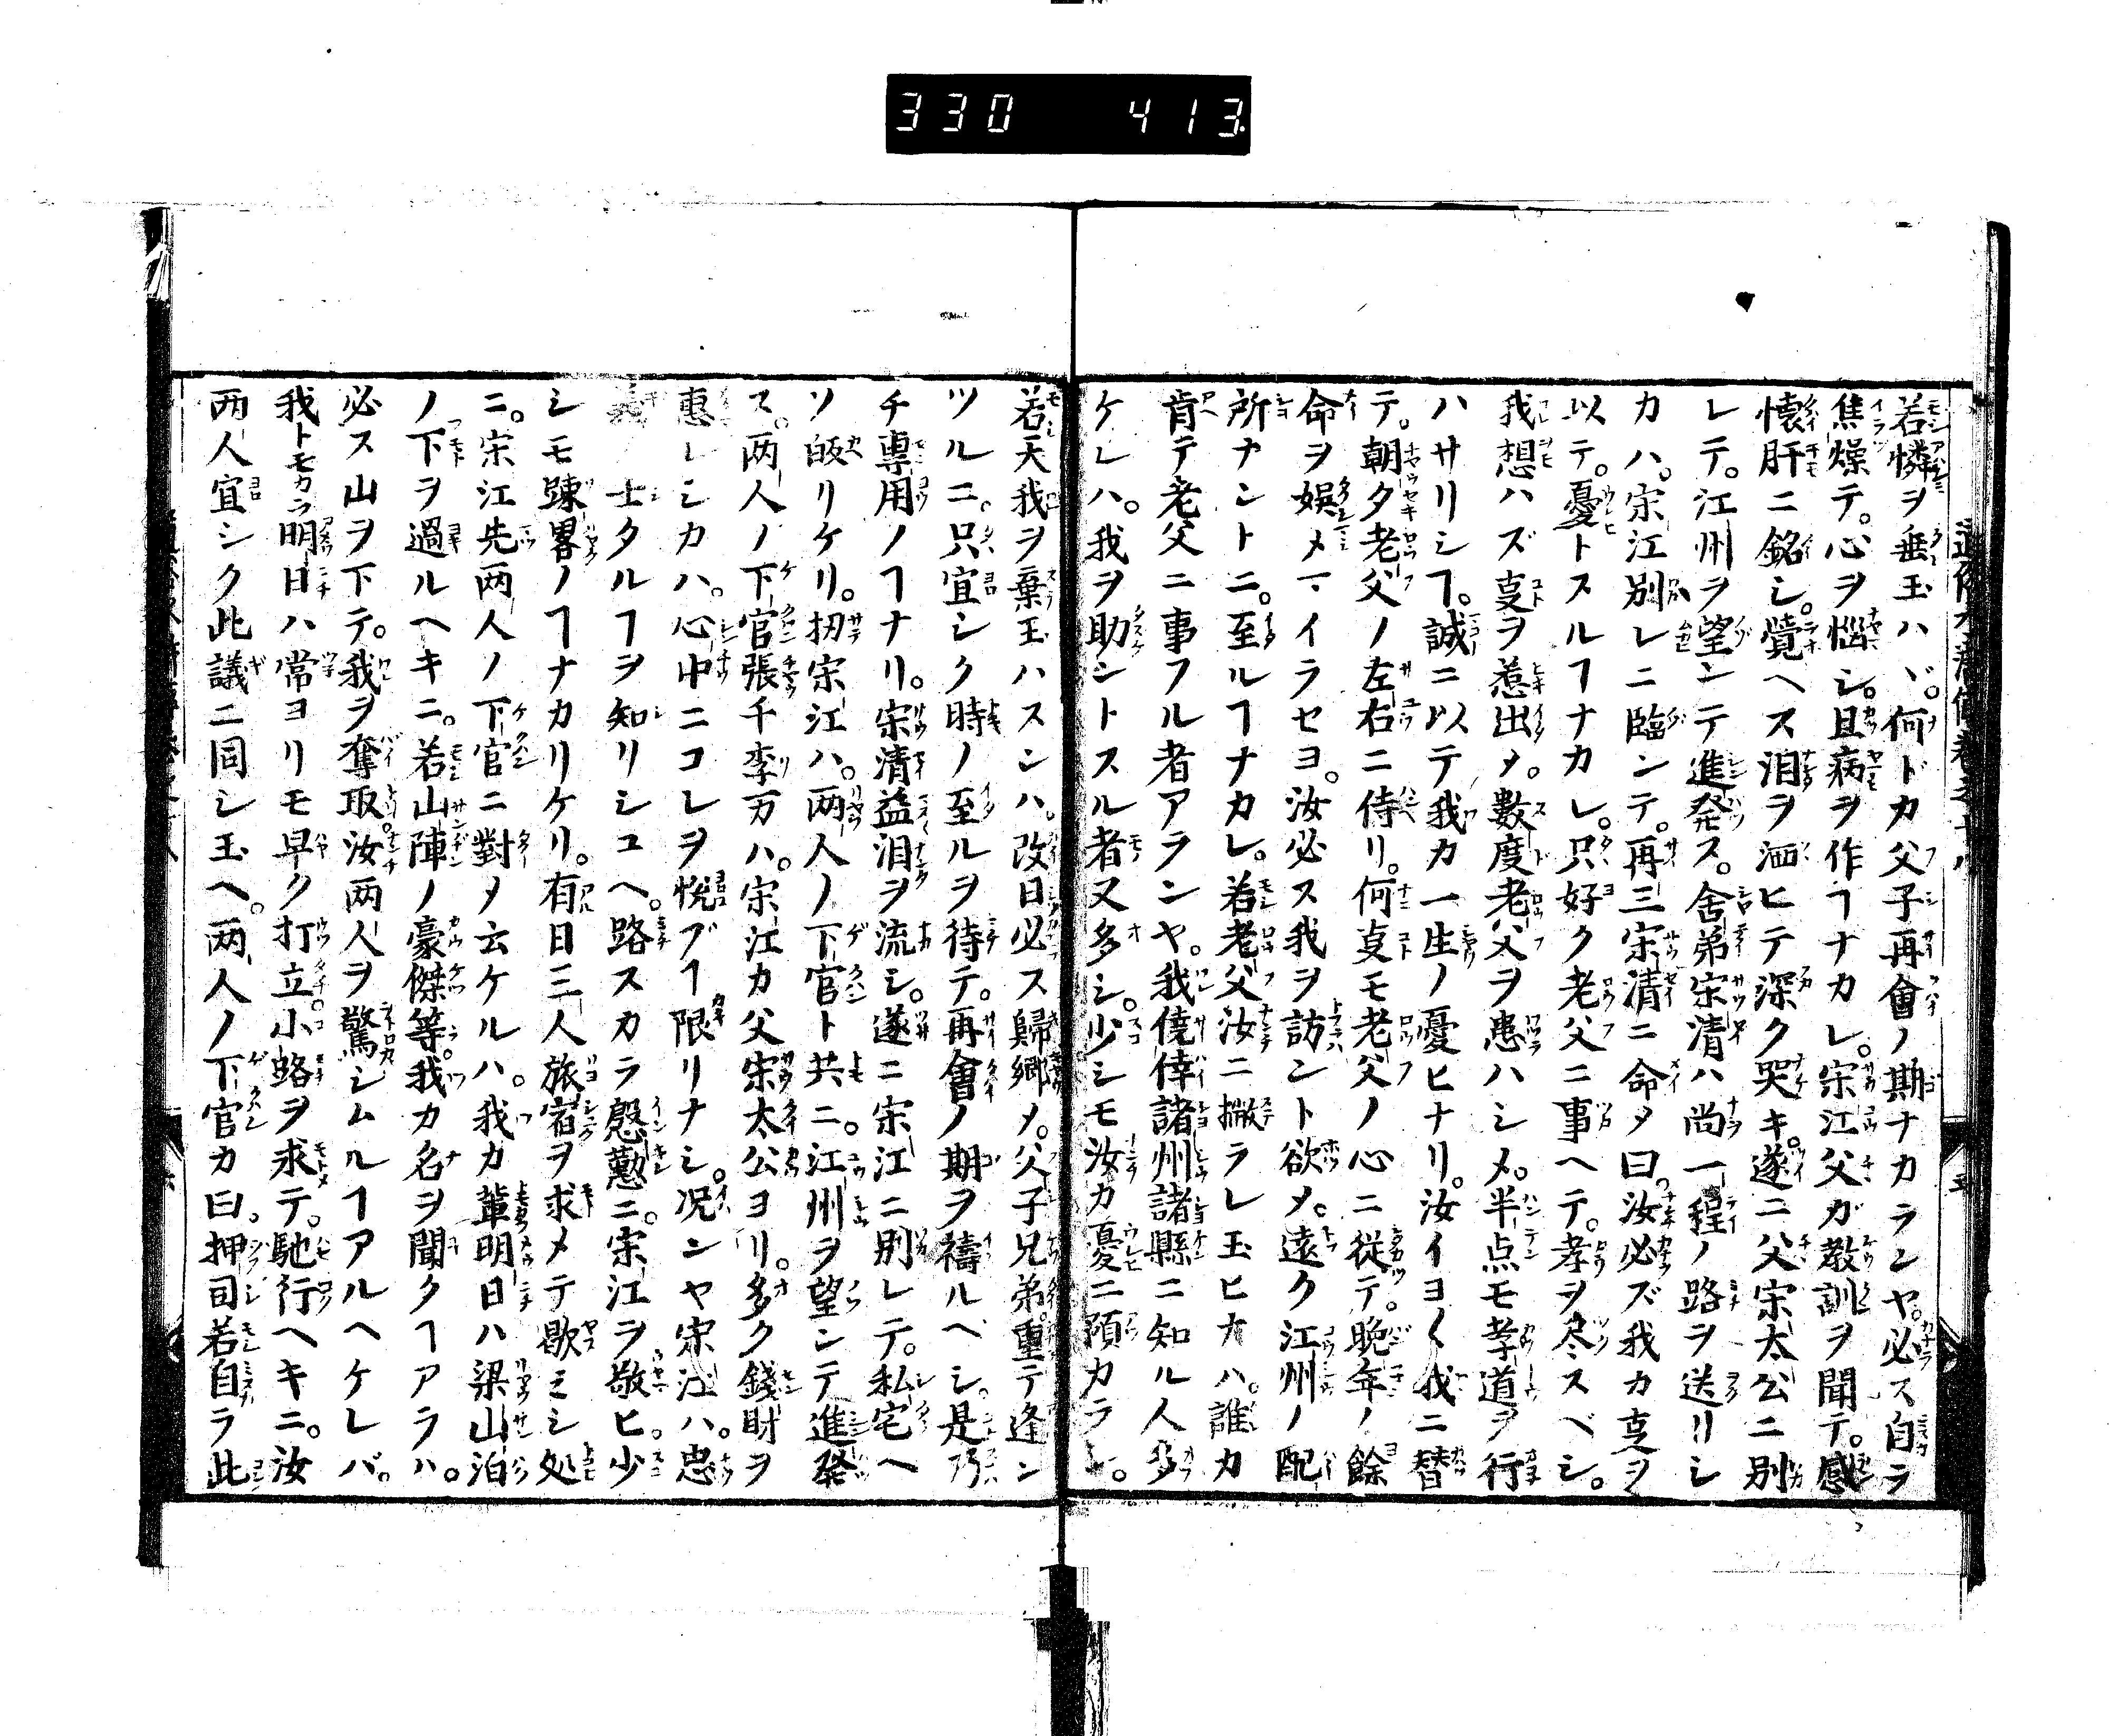 330 413
若憐ヲ垂玉ハヾ。何ドカ父子再會ノ期ナカランヤ。必ス自ラ
焦燥テ。心ヲ惱シ。且病ヲ作ヿナカレ。宋江父ガ教訓ヲ聞テ。感
懐肝ニ銘シ。覺ヘス泪ヲ洒ヒテ深ク哭キ。遂ニ父宋太公ニ別
レテ。江州ヲ望ンテ進発ス。舍弟宋清ハ尚一程ノ路ヲ送リシ
カハ。宋江別レニ臨ンテ。再三宋清ニ命メ曰。汝必ズ我カ㕝ヲ
以テ。憂トスルヿナカレ。只好ク老父ニ事ヘテ。孝ヲ尽スベシ。
我想ハズ㕝ヲ惹出メ。數度老父ヲ患ハシメ。半点モ孝道ヲ行
ハサリシヿ。誠ニ以テ我カ一生ノ憂ヒナリ。汝イヨ〱我ニ替
テ。朝夕老父ノ左右ニ侍リ。何㕝モ老父ノ心ニ従テ。晩年ノ餘
命ヲ娯メマイラセヨ。汝必ス我ヲ訪ント欲メ。遠ク江州ノ配
所ナントニ。至ルヿナカレ。若老父汝ニ撇ラレ玉ヒナハ。誰カ
肯テ老父ニ事フル者アランヤ。我僥倖諸州諸縣ニ知ル人多
ケレハ。我ヲ助ントスル者又多シ。少シモ汝カ憂ニ預カラ。
若天我ヲ棄玉ハスンハ。改日必ス歸郷メ。父子兄弟。重テ逢ン
ツルニ。只宜シク時ノ至ルヲ待テ。再會ノ期ヲ禱ルベシ。是乃
チ專用ノヿナリ。宋清益泪ヲ流シ。遂ニ宋江ニ別レテ。私宅ヘ
ソ皈リケリ。扨宋江ハ。両人ノ下官ト共ニ。江州ヲ望ンテ進發
ス。両人ノ下官張千李万ハ。宋江カ父宋太公ヨリ。多ク錢財ヲ
惠レシカハ。心中ニコレヲ悅ブヿ限リナシ。况ンヤ宋江ハ。忠
義士タルヿヲ知リシユヘ。路スカラ慇懃ニ。宋江ヲ敬ヒ。少
シモ踈畧ノヿナカリケリ。有日三人旅宿ヲ求メテ歇ミシ処
ニ。宋江先両人ノ下官ニ對メ云ケルハ。我カ輩明日ハ梁山泊
ノ下ヲ過ルヘキニ。若山陣ノ豪傑等。我カ名ヲ聞クヿアラハ。
必ス山ヲ下テ。我ヲ奪取。汝両人ヲ驚シムルヿアルヘケレバ。
我トモカラ明日ハ常ヨリモ早ク打立。小路ヲ求テ。馳行ヘキニ。汝
両人宜シク此議ニ同シ玉ヘ。両人ノ下官カ曰。押司若自ラ此